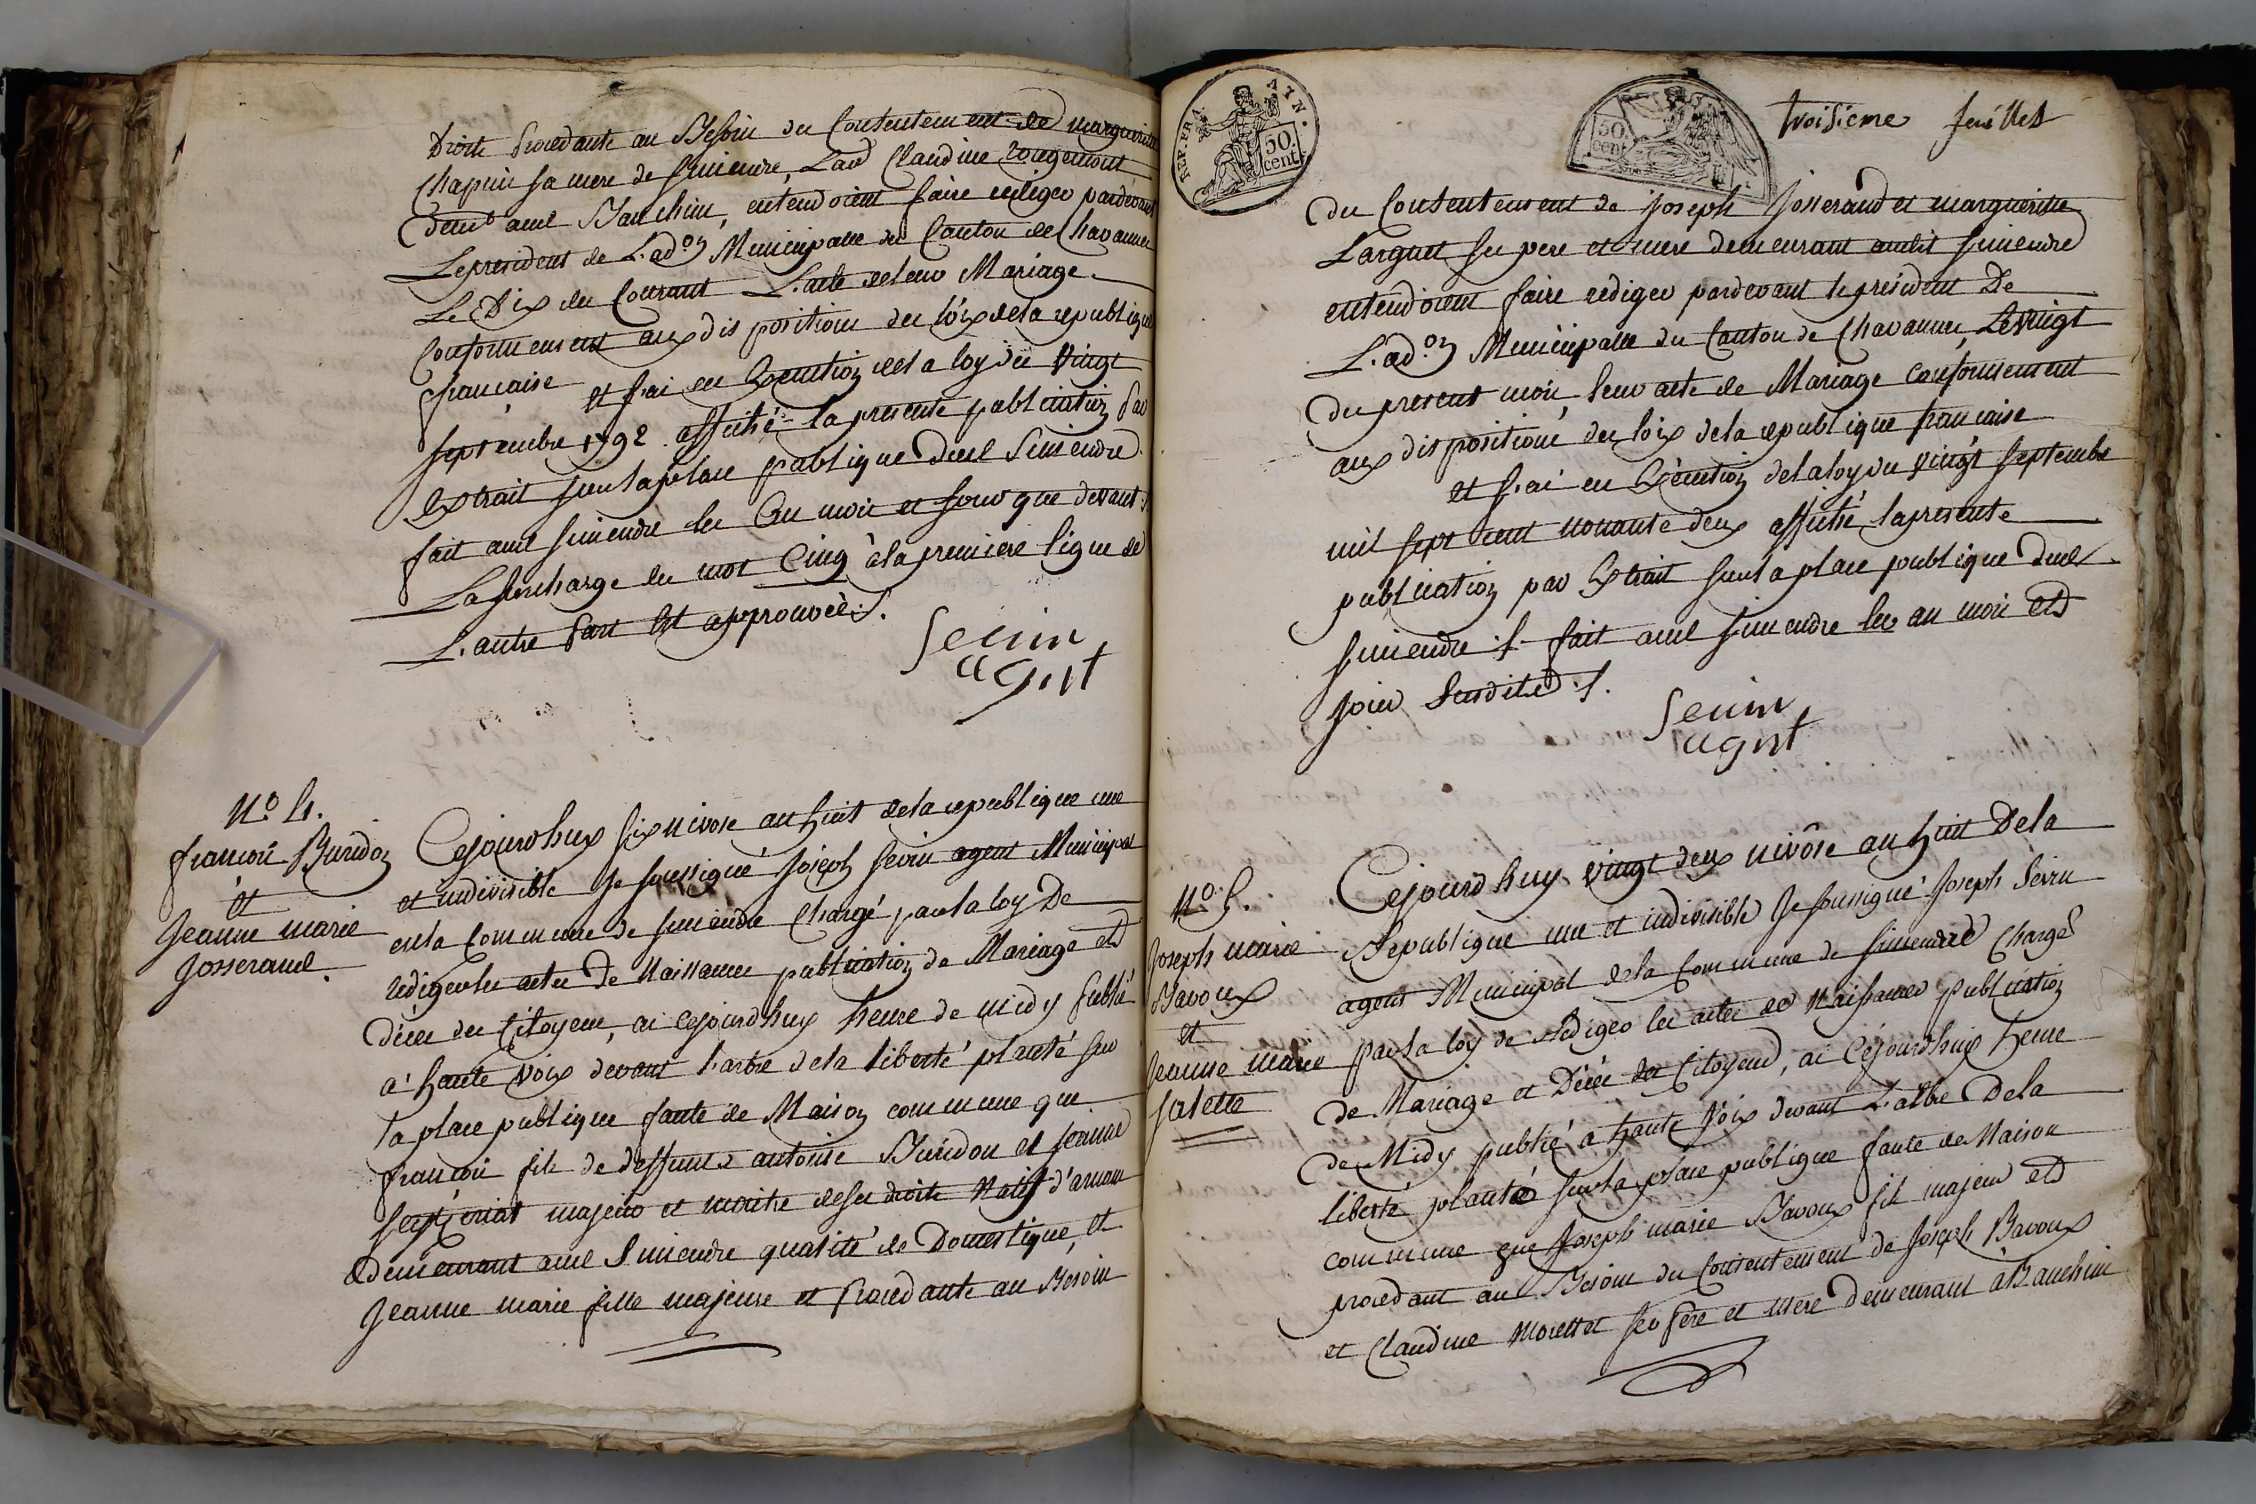 Droits procedante au Besoin du Consentement de marguerite
Chapuis sa mere de Simendre, Lad Claudine rougemont
demt aud Banchin, entendoient faire rediger pardevant
Le president de L.adon Municipalle du Canton de Chavannes
Le Dix du Courant L'acte de leur Mariage
Conformement aux dispositions des loix de la republique
francaise et j'ai en Execution de la loy du Vingt
septembre 1792. affiché la presente publication par
Extrait sur la place publique dud Simendre
fait aud simendre les an mois et jour que devant ./.
La surcharge du mot Cinq à la premiere ligne de
L'autre part Est approuvée ./.
Sevin
agent
No. 4.
francois Buridon
et
Jeanne marie
Josserand.
Cejourdhuy six nivose an huit de la republique une
et indivisible Je soussigné Joseph Sevin agent Municipal
en la Commune de simendre Chargé par la loy De
rediger les actes De Naissances publication de Mariage et
Décès des Citoyens, ai Cejourdhuy heure de midy publié
a' haute Voix devant l'arbre de la liberté planté sur
la place publique faute de Maison commune que
francois fils de deffunts antoine Buridon et Jeanne
majeur et maitre de ses droits Natif d'
demeurant aud Simendre qualité de Domestique, et
Jeanne marie fille majeure et procedante au Besoin
REP. FRA.
AYN.
50. cent.
50. cent.
troisieme feuillet
du Consentement de Joseph Josserand et marguerite
Larguet ses pere et mere demeurant audit simendre
entendoient faire rediger pardevant le president De
L.adon Municipalle du Canton de Chavannes, Le Vingt
du present mois leur acte de Mariage conformement
aux dispositions des loix de la republique francaise
et j'ai en Execution de la loy du vingt septembre
mil sept cent nonante deux affiché la presente
publication par Extrait sur la place publique dud
simendre ./. fait aud simendre les an mois et
jour susdits ./.
Sevin
agent
No. 5.
Joseph marie
Bavoux
et
Jeanne marie
Salette
Cejourdhuy vingt deux nivôse an huit De la
Republique une et indivisible Je soussigné Joseph Sevin
agent Municipal de la Commune de simendre Chargé
par la loy de Rediger les actes de Naissances publication
de Mariage et Décès des Citoyens, ai Cejourdhuy heure
de Midy publié a haute Voix devant L'arbre De la
liberté planté sur la place publique faute de Maison
commune que Joseph marie Bavoux fils majeur et
procedant au Besoin du Consentement de Joseph Bavoux
et Claudine Morellet ses pere et mere demeurant à Banchin